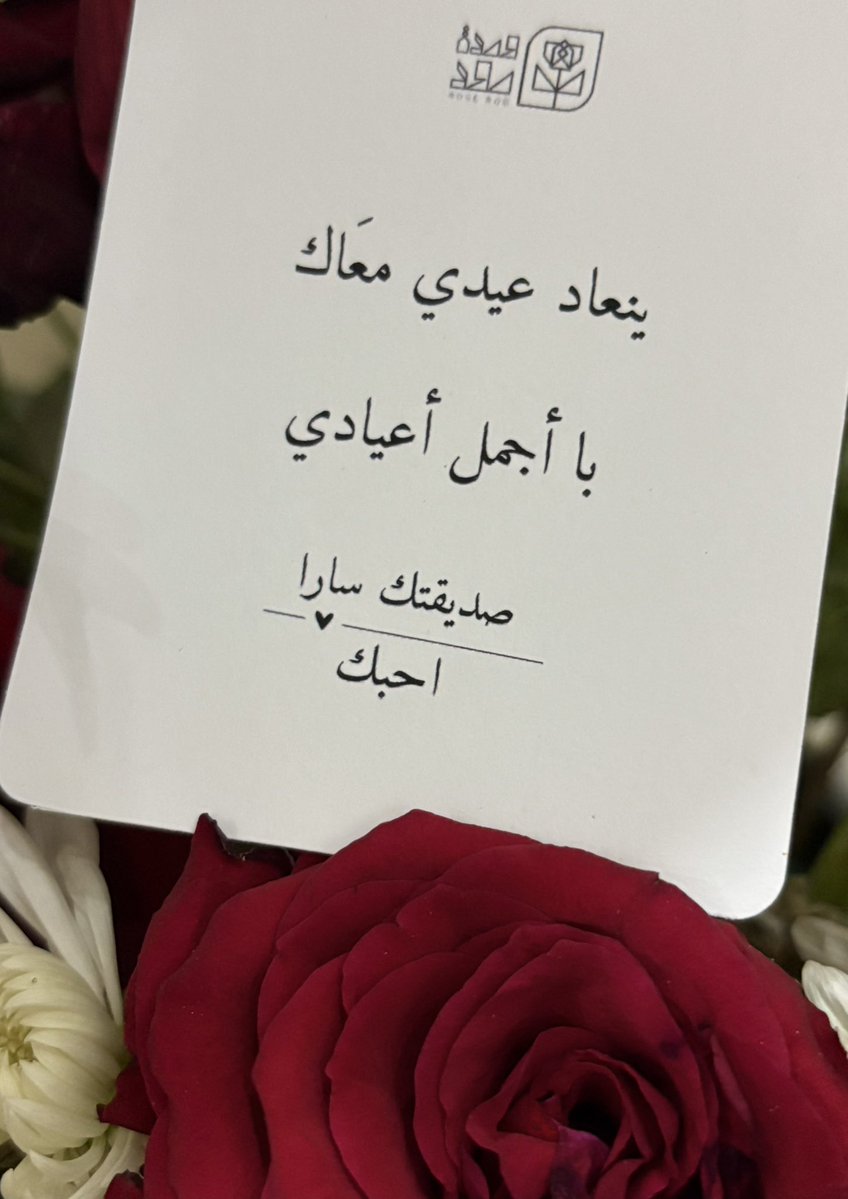 وردة
رود
ROSE ROD
ينعاد عيدي معَاك
با أجمل أعيادي
صديقتك سارا
احبك